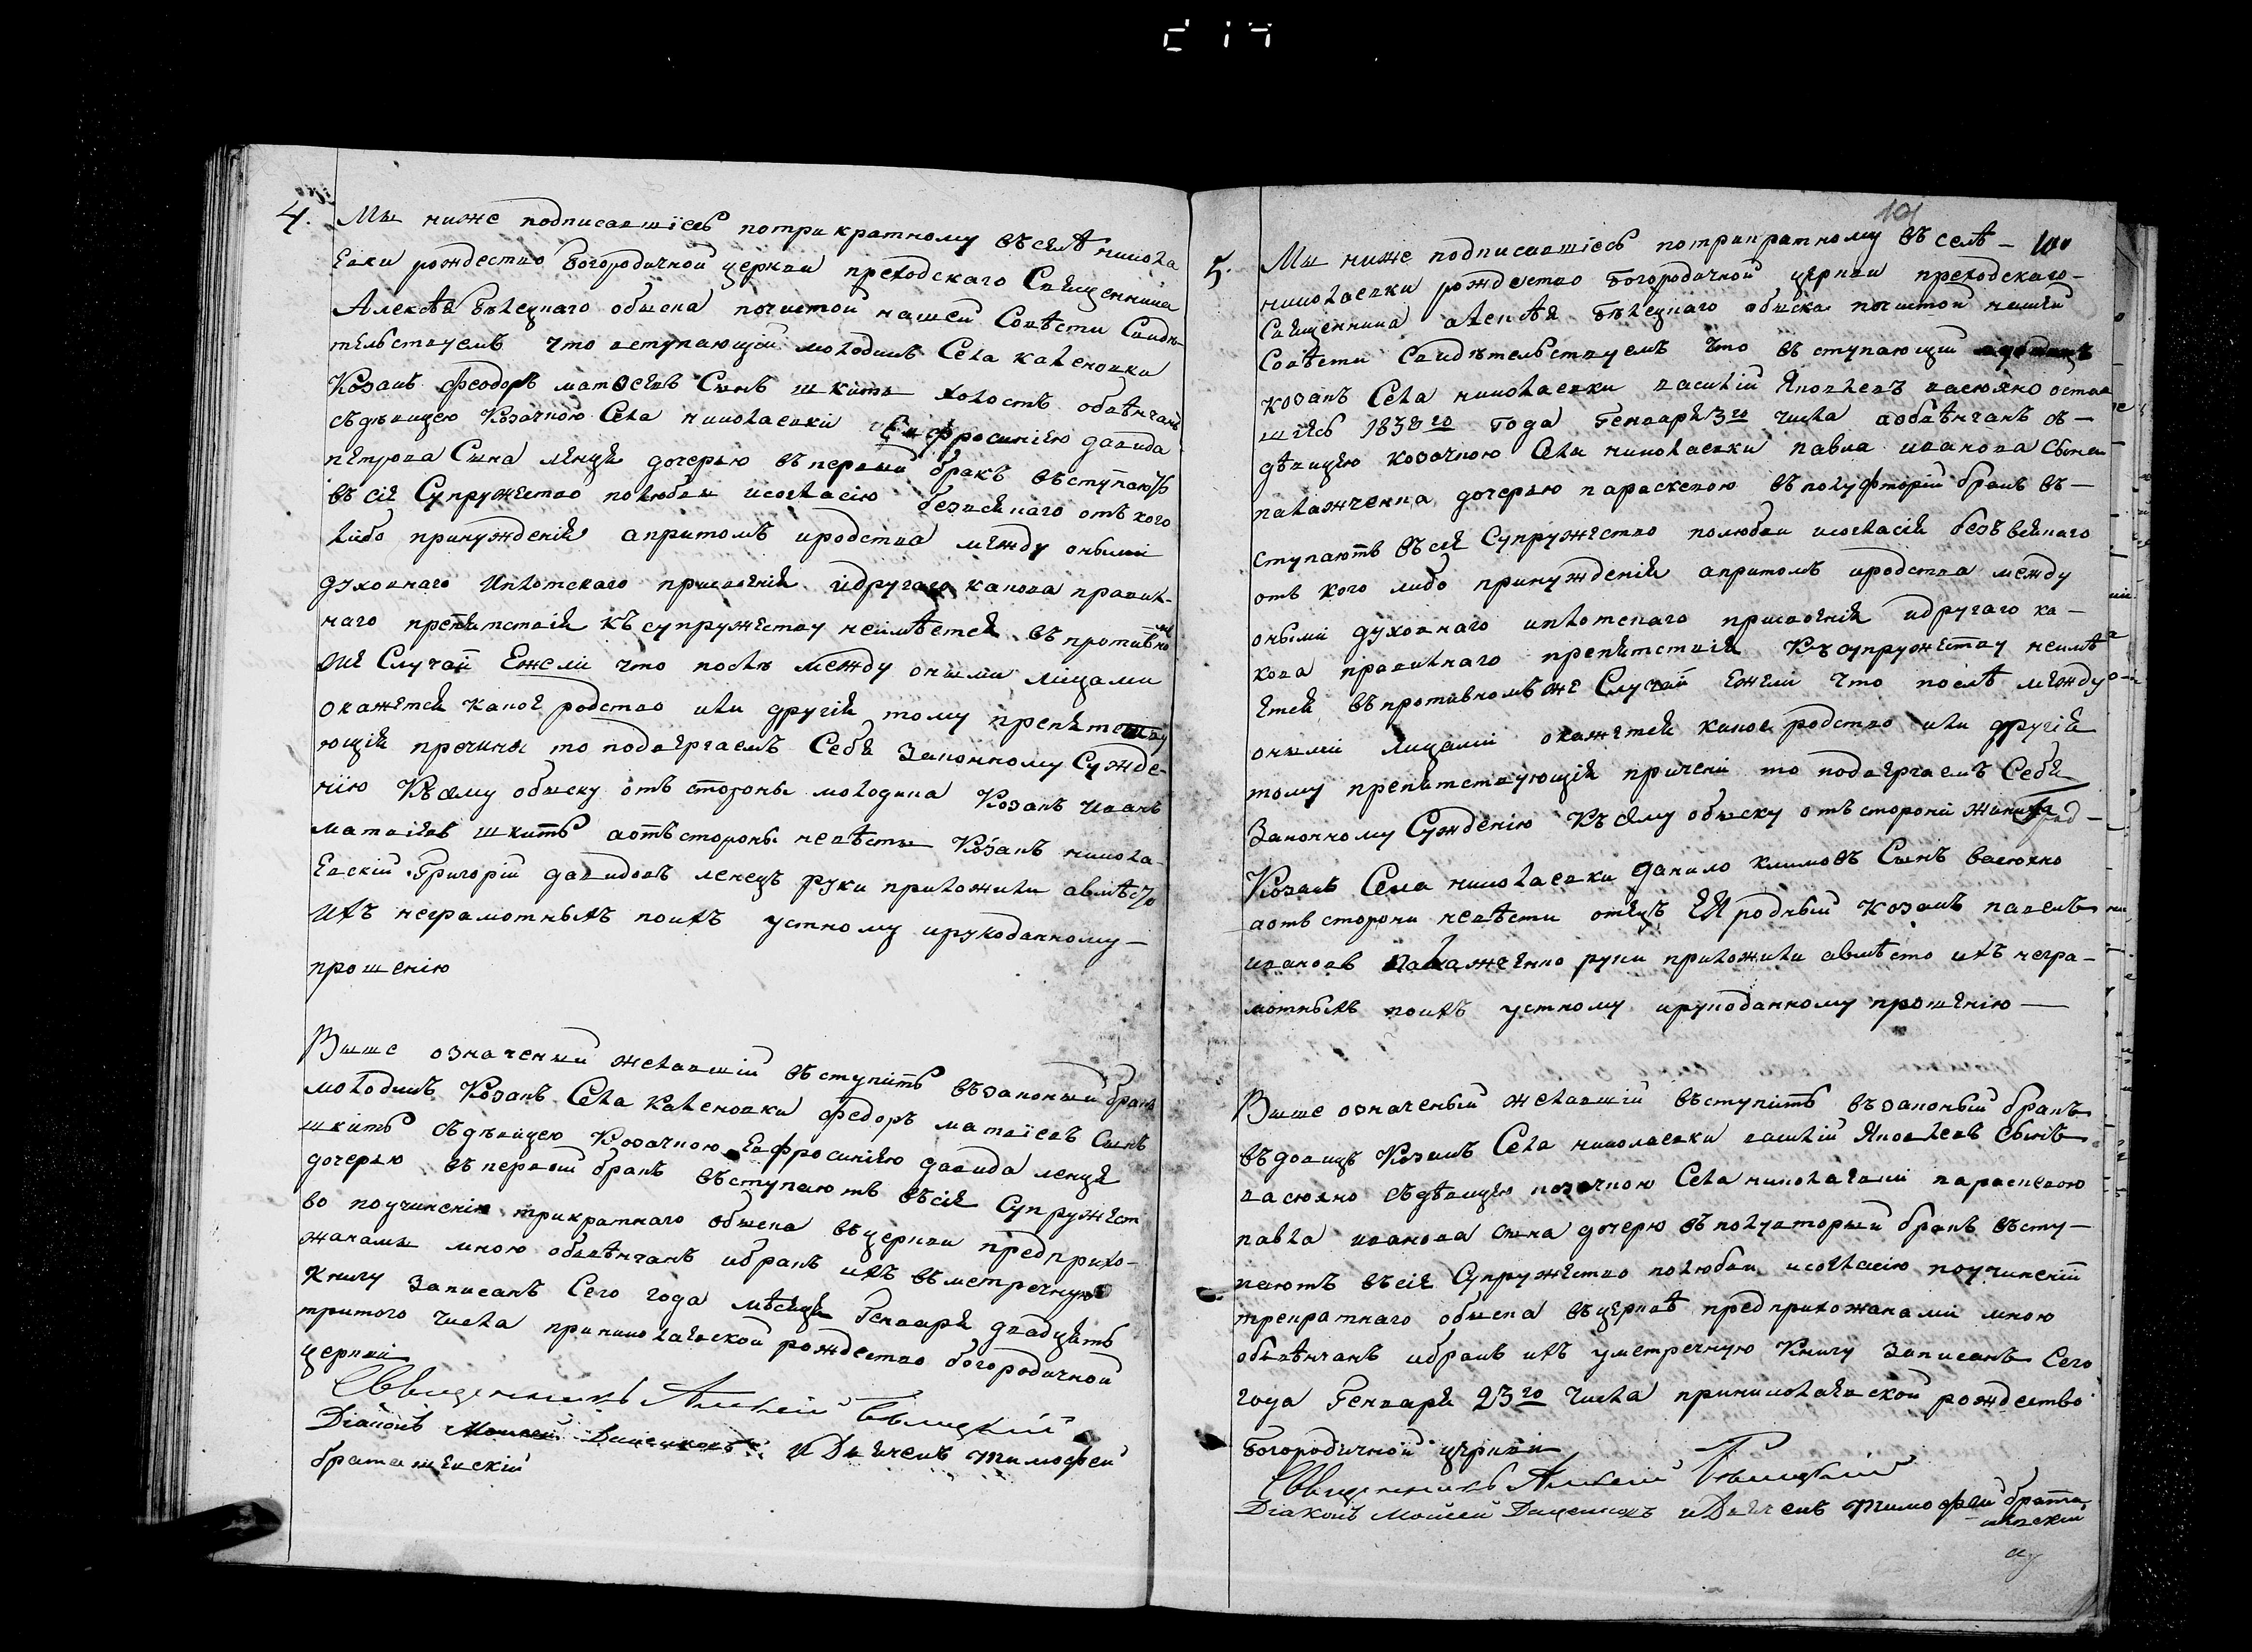 4. Мы ниже подписавшїесь потрикратному въ селѣ никола
евки рождество Богородичной церкви преходскаго Священника
Алексѣя Бѣлецкаго обыска почистой нашей Совѣсти Свидѣ
тельствуемъ что вступающой молодикъ Села каленовки
Козакъ феодоръ матвѣевъ Сынъ шкить холостъ обвѣнчанъ
съдѣвицею Козачкою Села николаевки Евфросинїею давида
петрова Сына ленця дочерью въ первый бракъ въступаютъ
въ сїе Супружество полюбви исогласїю безвсякаго отъ кого
либо принужденїя апритомъ иродства между оными
духовнаго иплотскаго присвоенїя идругаго какова правил-
наго препятствїя къ супружеству неимѣется въ противно
же Случаѣ Ежели что послѣ между оными лицами
окажется какое родство или другїя тому препятству
ющїя пречины то подвергаемъ Себя Законному Сужде-
нїю Къ сему обыску отъ стороны молодика Козакъ Иванъ
матвѣевъ шкить аотъ стороны невѣсты Козакъ никола-
Евскїй Григорїй давидовъ ленецъ руки приложили авмѣсто
ихъ неграмотныхъ поихъ устному ирукоданному-
прошенїю
Выше означеный желавшїй въступить въ законный бракъ
молодикъ Козакъ Села каленовки федоръ матвїевъ Сынъ
шкить съдѣвицею Козачкою Евфросинїею давида ленця
дочерью въ первой бракъ въступаютъ въсїе Супружест
во поучиненїи трикратнаго обыска въ церкви предприхо-
жанамы мною обвѣнчанъ ибракъ ихъ въметречную
Книгу Записанъ Сего года мѣсяця Генваря двадцять
тритого числа приниколаевской рождество богородичной
церкви
Священникъ Алексѣй Бѣлецкїй
Дїаконъ Моисей Даценковъ и Дьячекъ Тимофей
браташевскїй
101
5. Мы ниже подписавшїесь потрикратному въ селѣ-
николаевки рождество Богородичной церкви преходскаго-
Священника алексѣя Бѣлецкаго обыска почистой нашей
Совѣсти Свидѣтельствуемъ что въ ступающїй
козакъ Села николаевки василїй Яковлевъ васюхно остав
шїясь 1838го Года Генваря 3го числа аобвѣнчанъ съ-
дѣвицею козачкою Села николаевки павла иванова Сына
палажченка дочерью параскевою въ полувторїй бракъ въ-
ступаютъ въсїе Супружество полюбви исогласїя безъ всякаго
отъ кого либо принужденїя апритомъ иродства между
оными духовнаго иплотскаго присвоенїя идругаго ка-
кова правилнаго препятствїя Къ супружеству неимѣ
ется въ противномъ же Случаѣ Ежели что послѣ между
оными лицами окажется какое родство или другїя
тому препятствующїя причени то подвергаемъ Себя
Законному Сужденїю Къ сему обыску отъ стороны жениха
Козакъ Села николаевки данило климовъ Сынъ васюхно
аотъ сторони невѣсти отецъ ЕЯ родный козакъ павелъ
ивановъ Палажченко руки приложили авмѣсто ихъ негра-
мотныхъ поихъ устному ирукоданному прошенїю
Выше означеный желавшїй въступить въ законый бракъ
въдовецъ Козакъ Села николаевки василїй Яковлевъ Сынъ
васюхно съдѣвицею козачкою Села николаевки параскевою
павла иванова сына дочерю въ полувторый бракъ въсту-
паютъ въсїе Супружество полюбви исогласїю поучиненїи
трекратнаго обыска въ церквѣ предприхожанами мною
обвѣнчанъ ибракъ ихъ уметречную Книгу Записанъ Сего
года Генваря 23го числа приниколаевской рождество
Богородичной церкви
Священникъ Алексѣй Бѣлецкїй
Дїаконъ Моисей Даценковъ и Дьячекъ Тимофей брата-
шевскїй